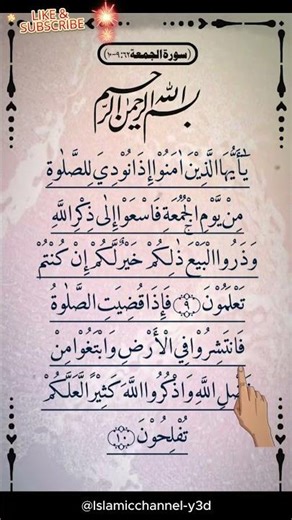 LIKE &
SUBSCRIBE
سورة الجمعة ٦٢:٩-١٠
بسم الله الرحمن الرحيم
يٰۤاَيُّهَا الَّذِيْنَ اٰمَنُوْۤا اِذَا نُوْدِيَ لِلصَّلٰوةِ
مِنْ يَّوْمِ الْجُمُعَةِ فَاسْعَوْا اِلٰى ذِكْرِ اللّٰهِ
وَذَرُوا الْبَيْعَ ذٰلِكُمْ خَيْرٌ لَّكُمْ اِنْ كُنْتُمْ
تَعْلَمُوْنَ ۝٩ فَاِذَا قُضِيَتِ الصَّلٰوةُ
فَانْتَشِرُوْا فِي الْاَرْضِ وَابْتَغُوْا مِنْ
فَضْلِ اللّٰهِ وَاذْكُرُوا اللّٰهَ كَثِيْرًا لَّعَلَّكُمْ
تُفْلِحُوْنَ ۝١٠
@Islamicchannel-y3d